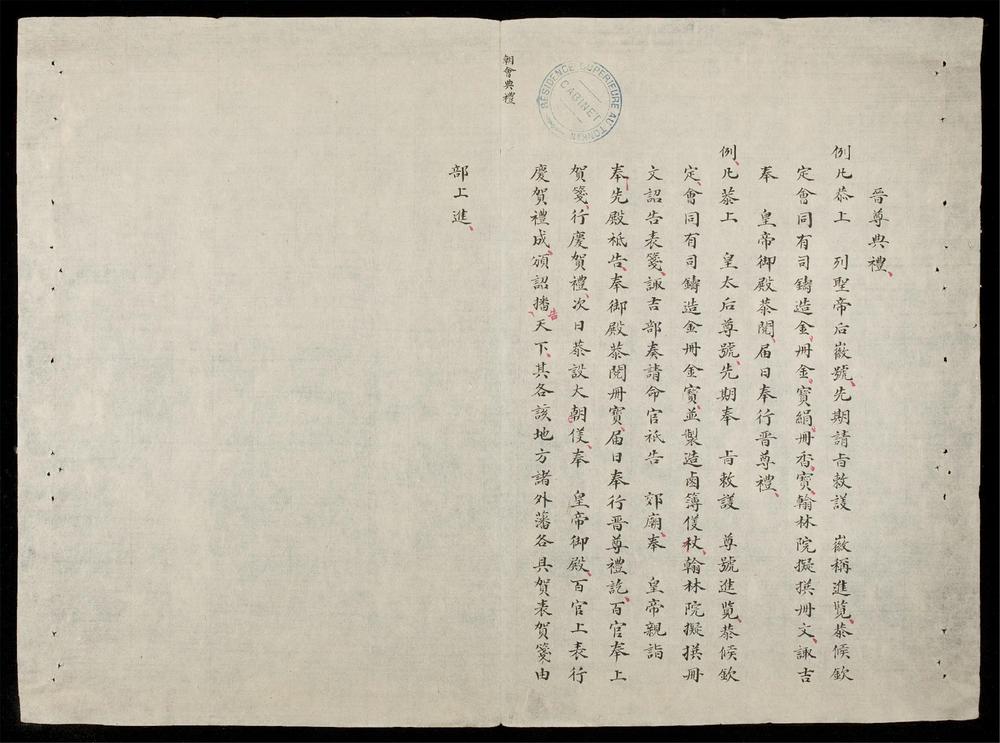 晉尊典禮、
例凡恭上　列聖帝后徽號、先期請旨敕議　徽稱進覽、恭候欽
定會同有司鑄造金冊、金寶、絹冊、香寶、翰林院擬撰冊文、諏吉
奉　皇帝御殿恭閱、届日奉行晉尊禮、
例、凡恭上　皇太后尊號、先期奉　旨敕議　尊號進覽、恭候欽
定、會同有司鑄造金冊金寶、並製造鹵簿儀杖、翰林院擬撰冊
文詔告表箋、諏吉部奏請命官祗告　郊廟、奉　皇帝親詣
奉先殿祗告、奉御殿恭閱冊寶、届日奉行晉尊禮訖、百官奉上
賀箋、行慶賀禮、次日恭設大朝儀、奉　皇帝御殿、百官上表行
慶賀禮成、頒詔播告天下、其各該地方諸外藩各具賀表賀箋由
部上進、
朝會典禮
RÉSIDENCE SUPÉRIEURE AU TONKIN
CABINET